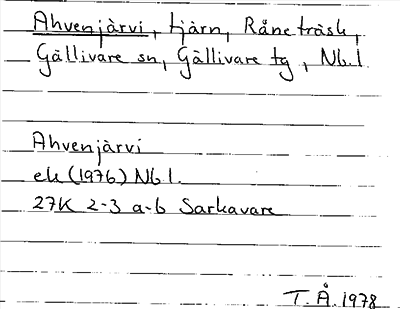 Ahvenjärvi, tjärn, Råneträsk,
Gällivare sn, Gällivare tg, Nb.l.
Ahvenjärvi
ek (1976) Nb l.
27K 2-3 a-b Sarkavare
T. Å. 1978